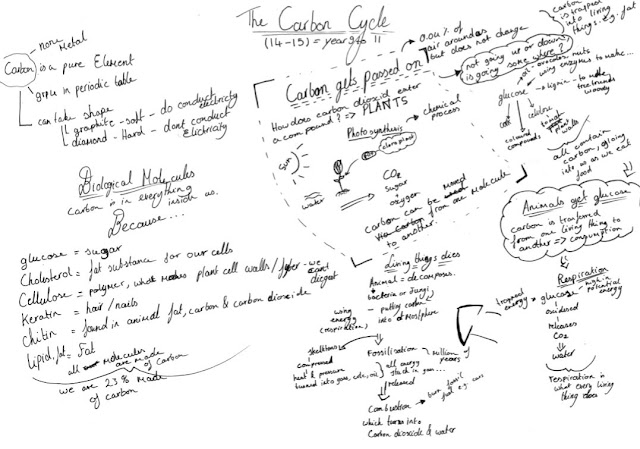 The Carbon Cycle
(14-15) = year 9 to 11
none Metal
Carbon is a pure Element
group in periodic table
can take shape
graphite - soft - do conduct electricity
diamond - Hard - dont conduct Elictricity
Biological Molecules
carbon is in everything
inside us.
Because...
glucose = sugar
Cholsterol = fat substance for our cells
Cellulose = polymer, what Makes plant cell walls / fiber - we cant digest
Keratin = hair / nails
Chitin = found in animal fat, carbon & carbon dioxide
Lipid, fat = Fat
all Molecules are made of Carbon
we are 23% made
of carbon
Carbon gets passed on
How does carbon dioxid enter
a compound? => PLANTS
Photosynthesis
chemical
process
Sun
chloroplast
water
CO2
sugar
oxygen
carbon can be moved
carbon from one Molecule
to another.
0.04% of
air around us
but does not change
not going up or down,
is going some where?
carbon
is trapped
into living
things e.g. fat
oil - avocados, nuts
using enzymes to make...
glucose
lignin - to make
tree trunks
woody
cellulose
coloured
compounds
plant
walls
all contain
carbon, going
into us as we eat
food
Animals get glucose
carbon is transfered
from one living thing to
another => consumption
Respiration
fragrant
energy
glucose
potential
energy
oxidised
releases
CO2
water
Respiration is
what every living
thing does
Living things dies
Animal = decomposes.
bacteria or fungi
putting carbon
into atMosphere
using
energy
(respiration)
skeletons
compressed
heat & pressure
burned into gas, cole, oil
Fossilisation
Million of
years
all energy
stuck in gas...
released
Combustion
burn fossil
fuel e.g. cars
which turns into
Carbon dioxide & water